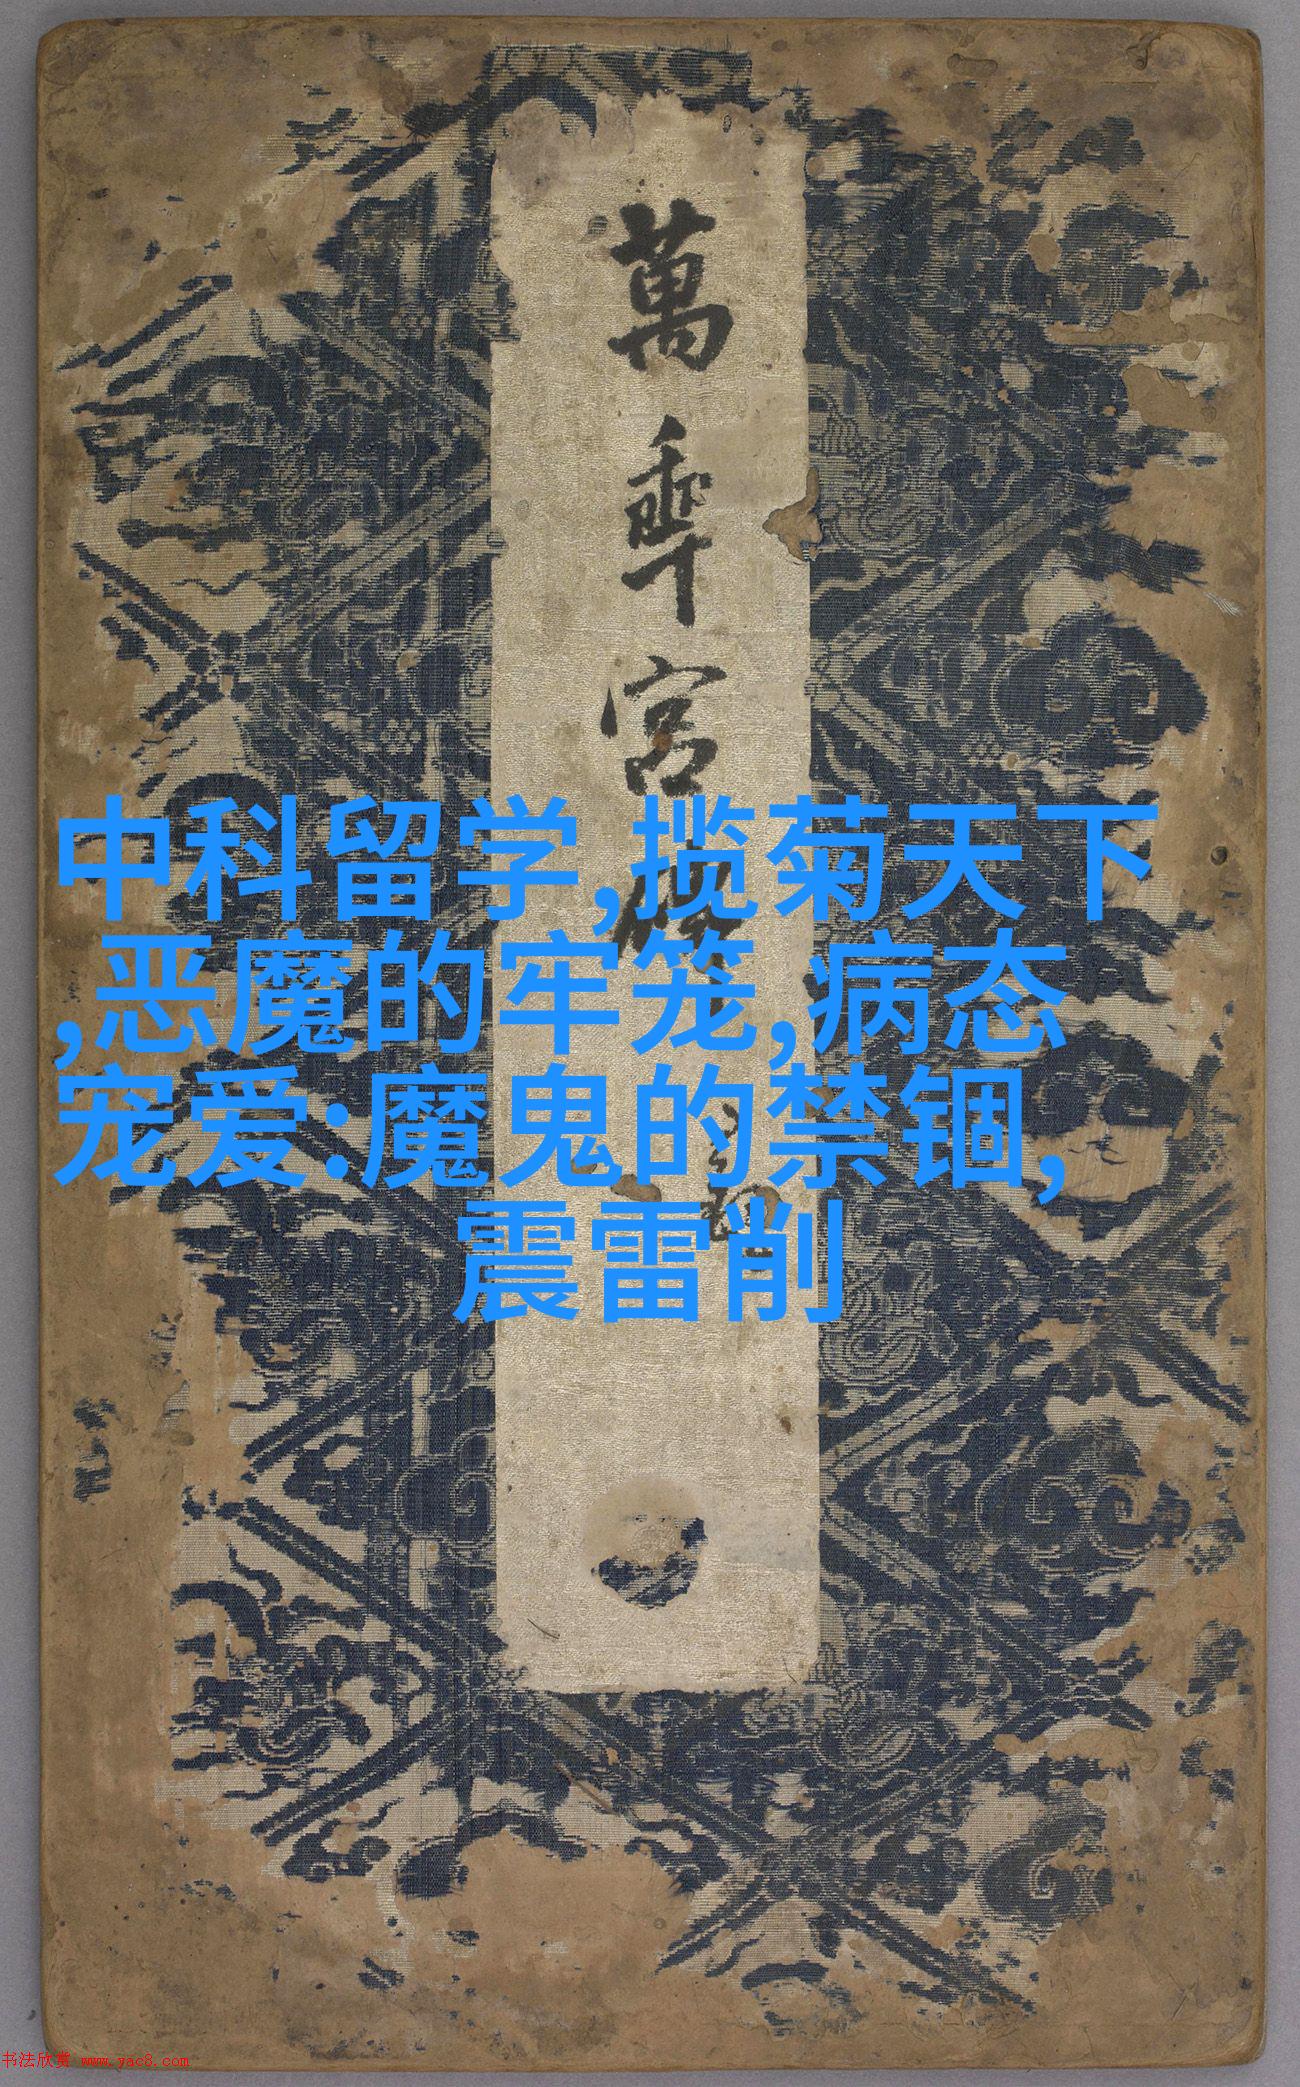 萬
乘
宮
中科留学,揽菊天下
,恶魔的牢笼,病态
宠爱:魔鬼的禁锢,
震雷削
书法欣赏 www.yac8.com